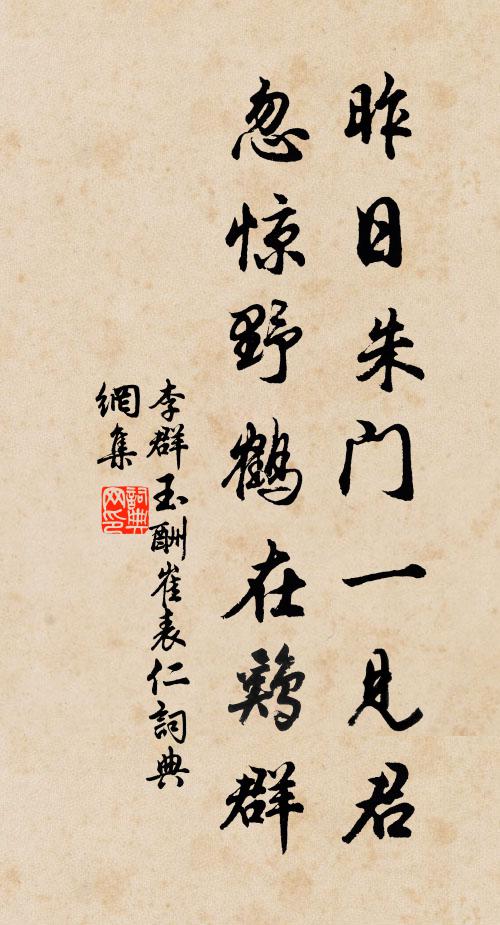 昨日朱门一见君
忽惊野鹤在鷄群
李群玉酬崔表仁詞典
網集
詞典
网印